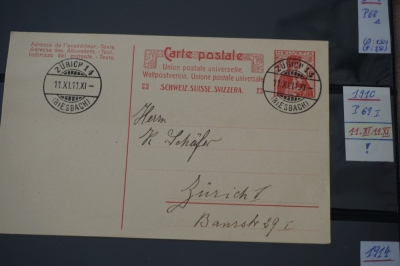 Adresse de l'expéditeur.-Texte.
Adresse des Absenders.-Text.
Indirizzo del mittente.-Testo.
Carte postale
Union postale universelle.
Weltpostverein. Unione postale universale.
SCHWEIZ. SUISSE. SVIZZERA.
ZÜRICH 14
11.XI.11.XI-
(RIESBACH)
ZÜRICH 14
11.XI.11.XI-
(RIESBACH)
HELVETIA
Herrn
K Schäfer
Zürich I
Baurstr 29 I
P68
1910
P 69 I
11.XI.11.XI
!
1914